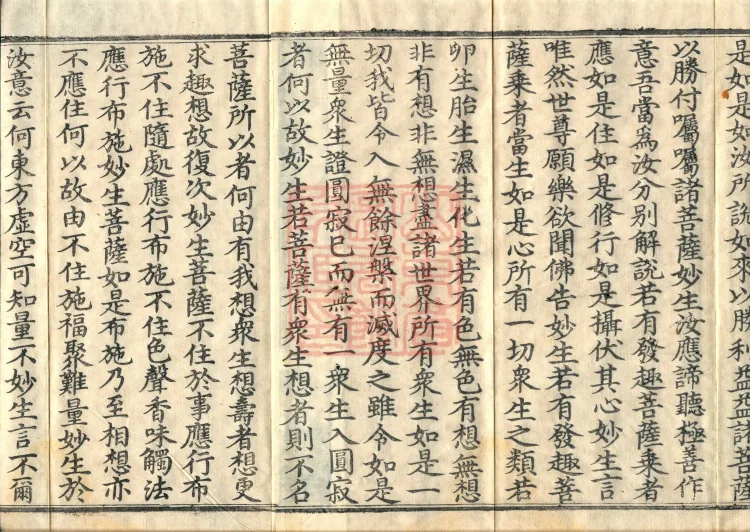 是如是如汝所說如來以勝利益益諸菩薩
以勝付囑囑諸菩薩妙生汝應諦聽極善作
意吾當為汝分別解說若有發趣菩薩乘者
應如是住如是修行如是攝伏其心妙生言
唯然世尊願樂欲聞佛告妙生若有發趣菩
薩乘者當生如是心所有一切衆生之類若
卵生胎生濕生化生若有色無色有想無想
非有想非無想盡諸世界所有衆生如是一
切我皆令入無餘涅槃而滅度之雖令如是
無量衆生證圓寂已而無有一衆生入圓寂
者何以故妙生若菩薩有衆生想者則不名
菩薩所以者何由有我想衆生想壽者想更
求趣想故復次妙生菩薩不住於事應行布
施不住隨處應行布施不住色聲香味觸法
應行布施妙生菩薩如是布施乃至相想亦
不應住何以故由不住施福聚難量妙生於
汝意云何東方虛空可知量不妙生言不爾